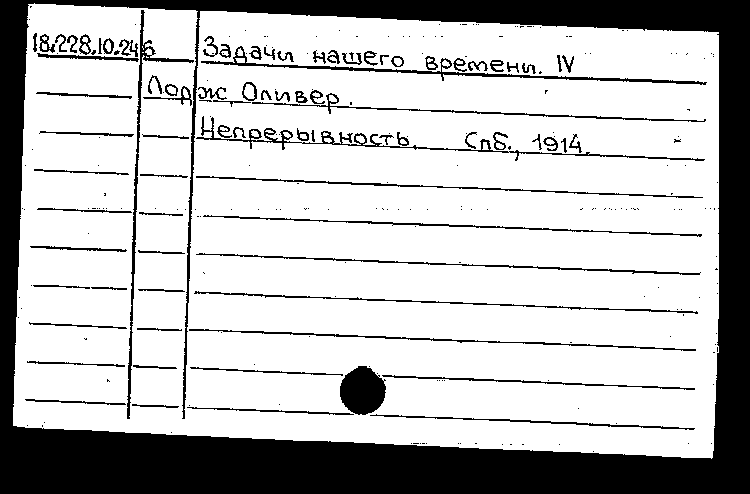 18.228.10.24б Задачи нашего времени. IV
Лодж, Оливер.
Непрерывность. Спб., 1914.